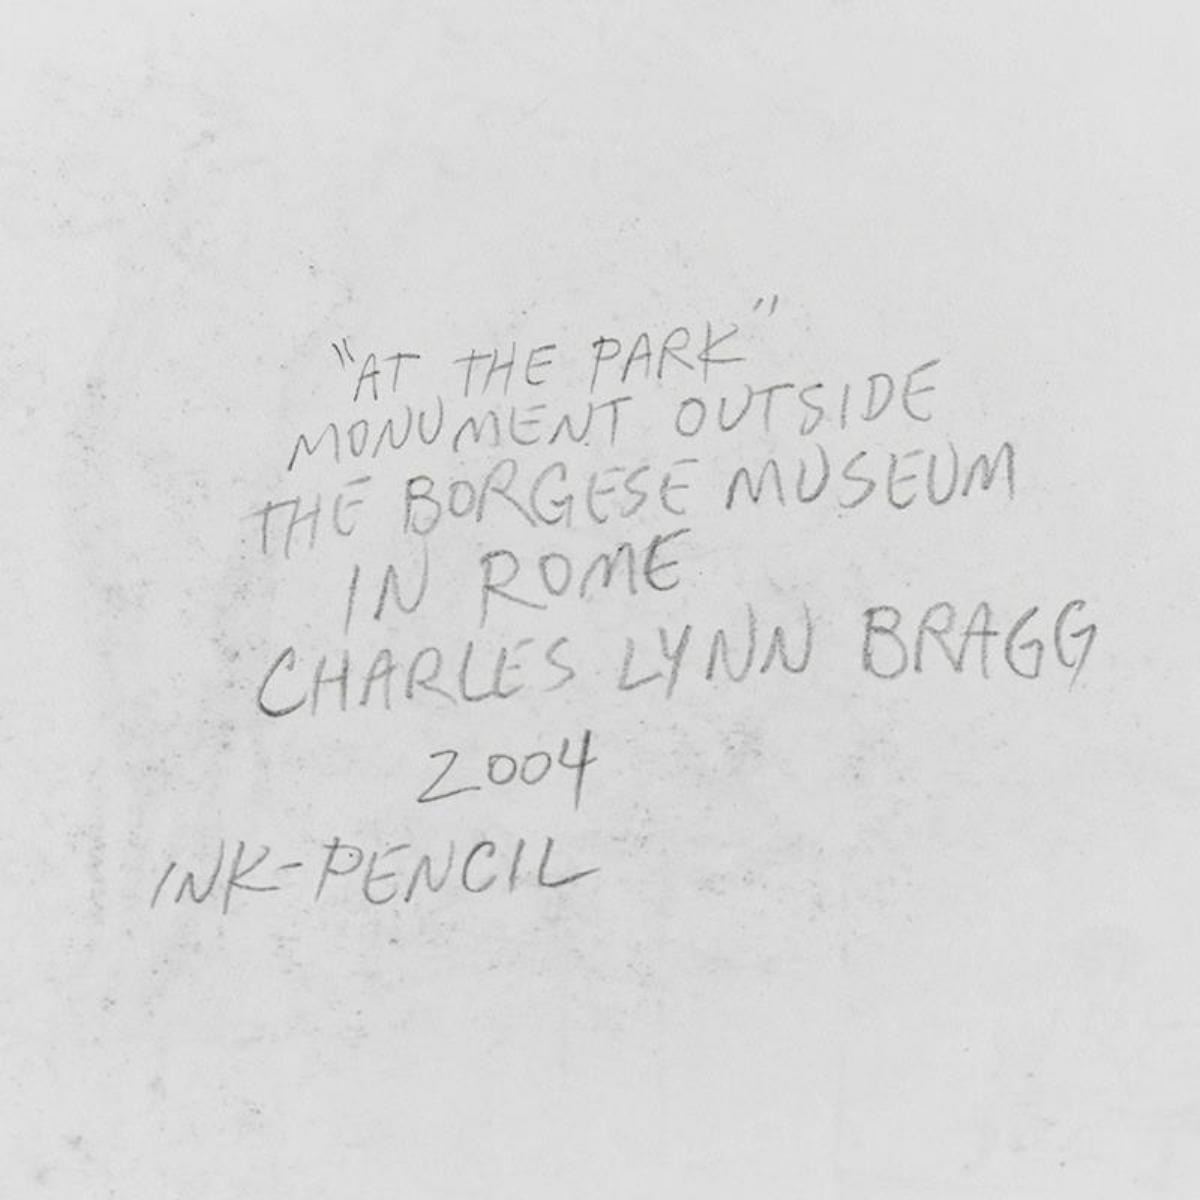 "AT THE PARK"
MONUMENT OUTSIDE
THE BORGESE MUSEUM
IN ROME
CHARLES LYNN BRAGG
2004
INK-PENCIL